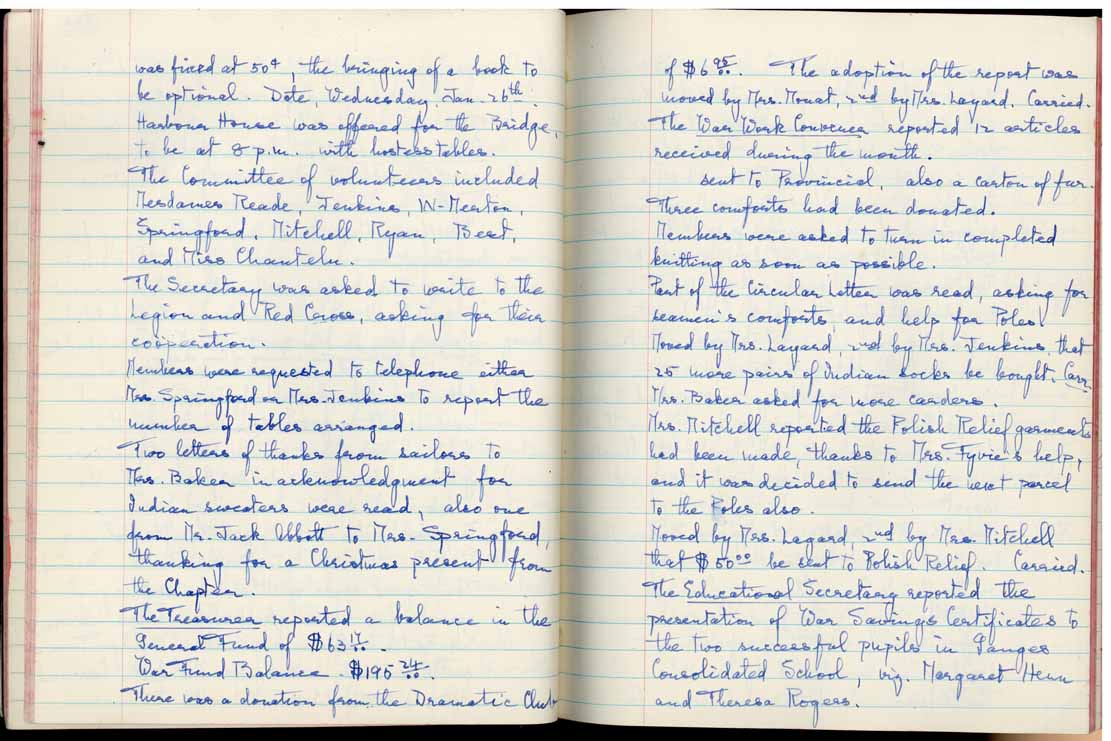 was fixed at 50¢, the bringing of a book to
be optional. Date, Wednesday. Jan. 26th.
Harbour House was offered for the Bridge,
to be at 8 p.m. with hostess tables.
The Committee of volunteers included
Mesdames Reade, Jenkins, W-Merton,
Springford, Mitchell, Ryan, Best,
and Miss Chantelu.
The Secretary was asked to write to the
Legion and Red Cross, asking for their
coöperation.
Members were requested to telephone either
Mrs. Springford or Mrs. Jenkins to report the
number of tables arranged.
Two letters of thanks from sailors to
Mrs. Baker in acknowledgment for
Indian sweaters were read, also one
from Mr. Jack Abbott to Mrs. Springford,
thanking for a Christmas present from
the Chapter.
The Treasurer reported a balance in the
General Fund of $63.17.
War Fund Balance. $195.24.
There was a donation from the Dramatic Club
of $6.95. The adoption of the report was
moved by Mrs. Mouat, 2nd by Mrs. Layard. Carried.
The War Work Convener reported 12 articles
received during the month.
sent to Provincial, also a carton of fur.
Three comforts had been donated.
Members were asked to turn in completed
knitting as soon as possible.
Part of the Circular Letter was read, asking for
seamen's comforts, and help for Poles.
Moved by Mrs. Layard, 2nd by Mrs. Jenkins, that
25 more pairs of Indian socks be bought. Carr.
Mrs. Baker asked for more carders.
Mrs. Mitchell reported the Polish Relief garments
had been made, thanks to Mrs. Fyvie's help,
and it was decided to send the next parcel
to the Poles also.
Moved by Mrs. Layard, 2nd by Mrs. Mitchell
that $50.00 be sent to Polish Relief. Carried.
The Educational Secretary reported the
presentation of War Savings Certificates to
the two successful pupils in Ganges
Consolidated School, viz. Margaret Henn
and Theresa Rogers.